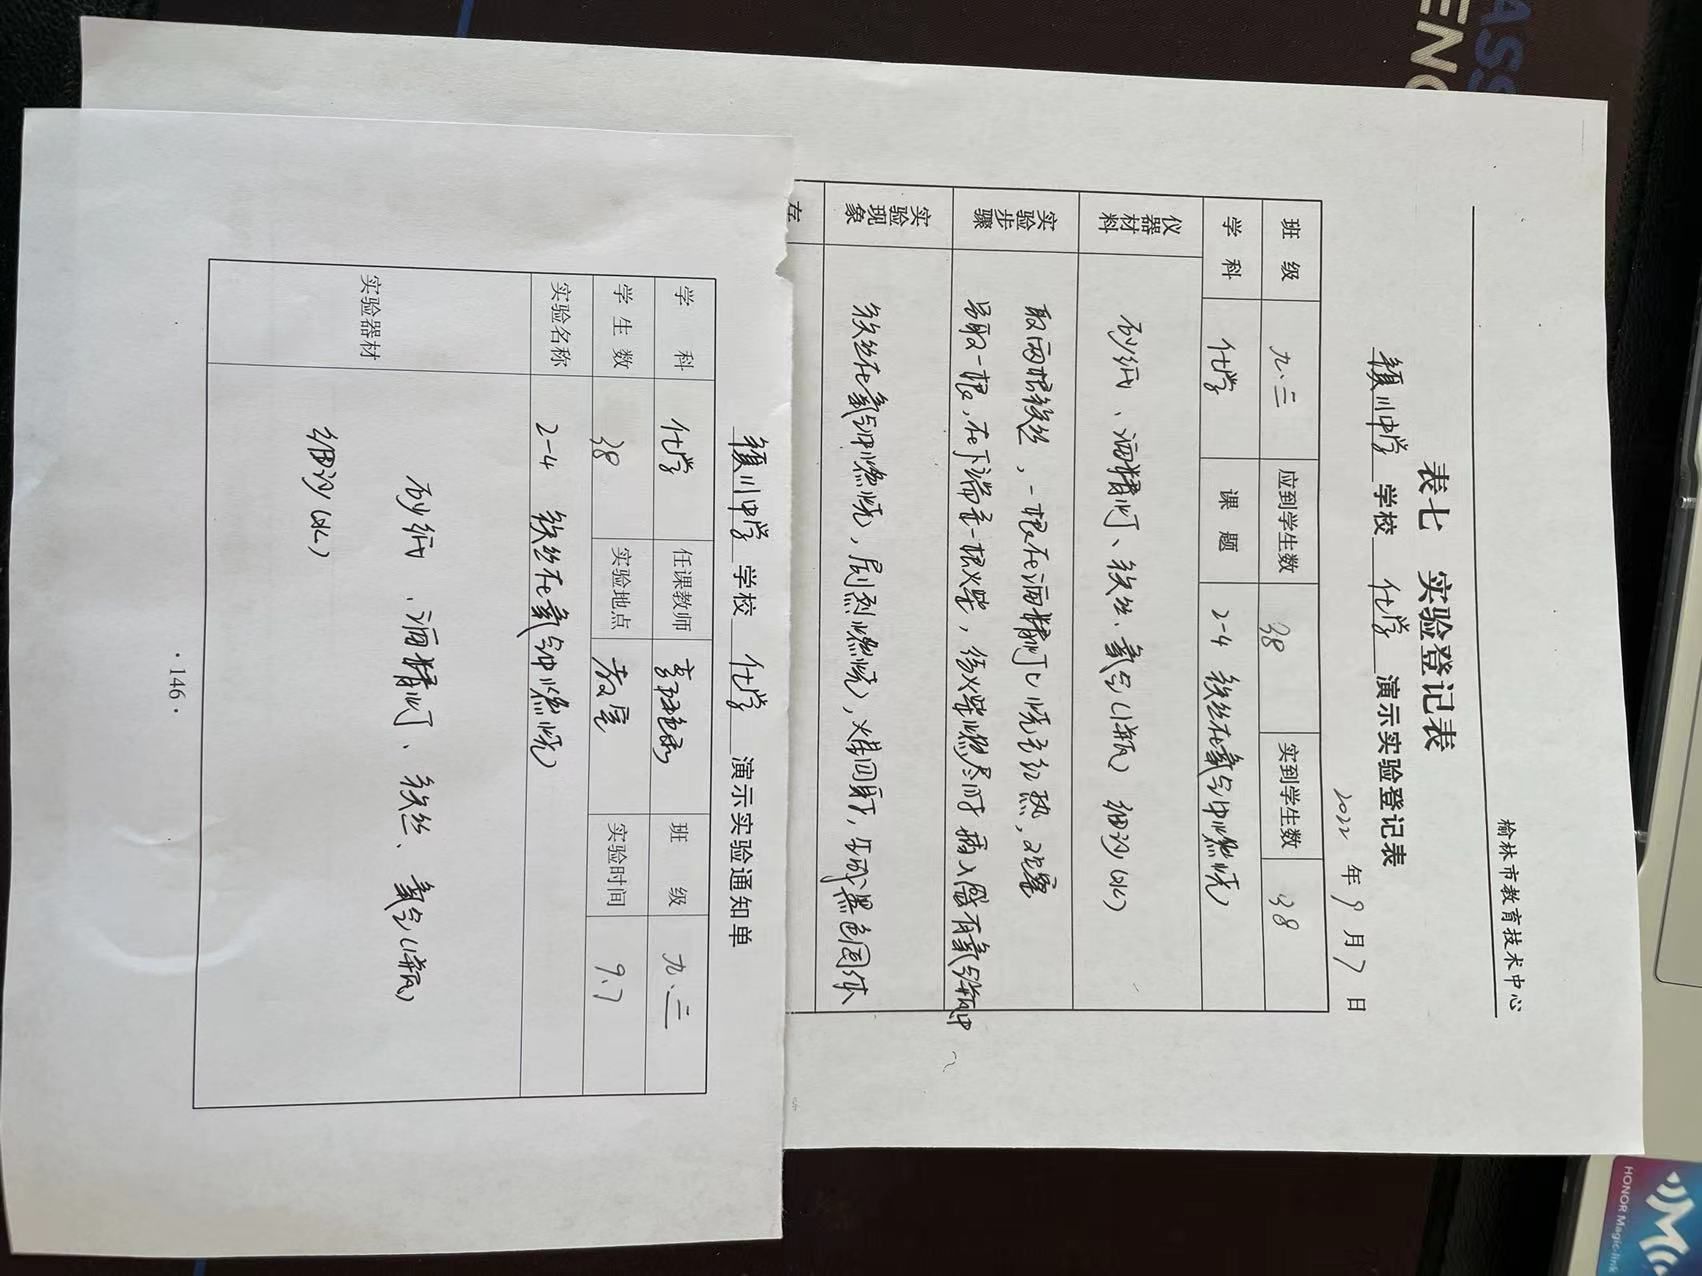 榆林市教育技术中心
表七 实验登记表
镇川中学 学校 化学 演示实验登记表
2022 年 9 月 7 日
班级 九.三 应到学生数 38 实到学生数 38
学科 化学 课题 2-4 铁丝在氧气中燃烧
仪器材料 砂纸、酒精灯、铁丝、氧气(1瓶) 细沙(水)
实验步骤 取两根铁丝,一根在酒精灯上烧至红热,观察
另取一根,在下端系一根火柴,待火柴燃尽时插入盛有氧气瓶中
实验现象 铁丝在氧气中燃烧,剧烈燃烧,火星四射,生成黑色固体
左
镇川中学 学校 化学 演示实验通知单
学科 化学 任课教师 班级 九.三
学生数 38 实验地点 教室 实验时间 9.7
实验名称 2-4 铁丝在氧气中燃烧
实验器材 砂纸、酒精灯、铁丝、氧气(1瓶)
细沙(水)
·146·
ASS
ENG
HONOR Magic-link